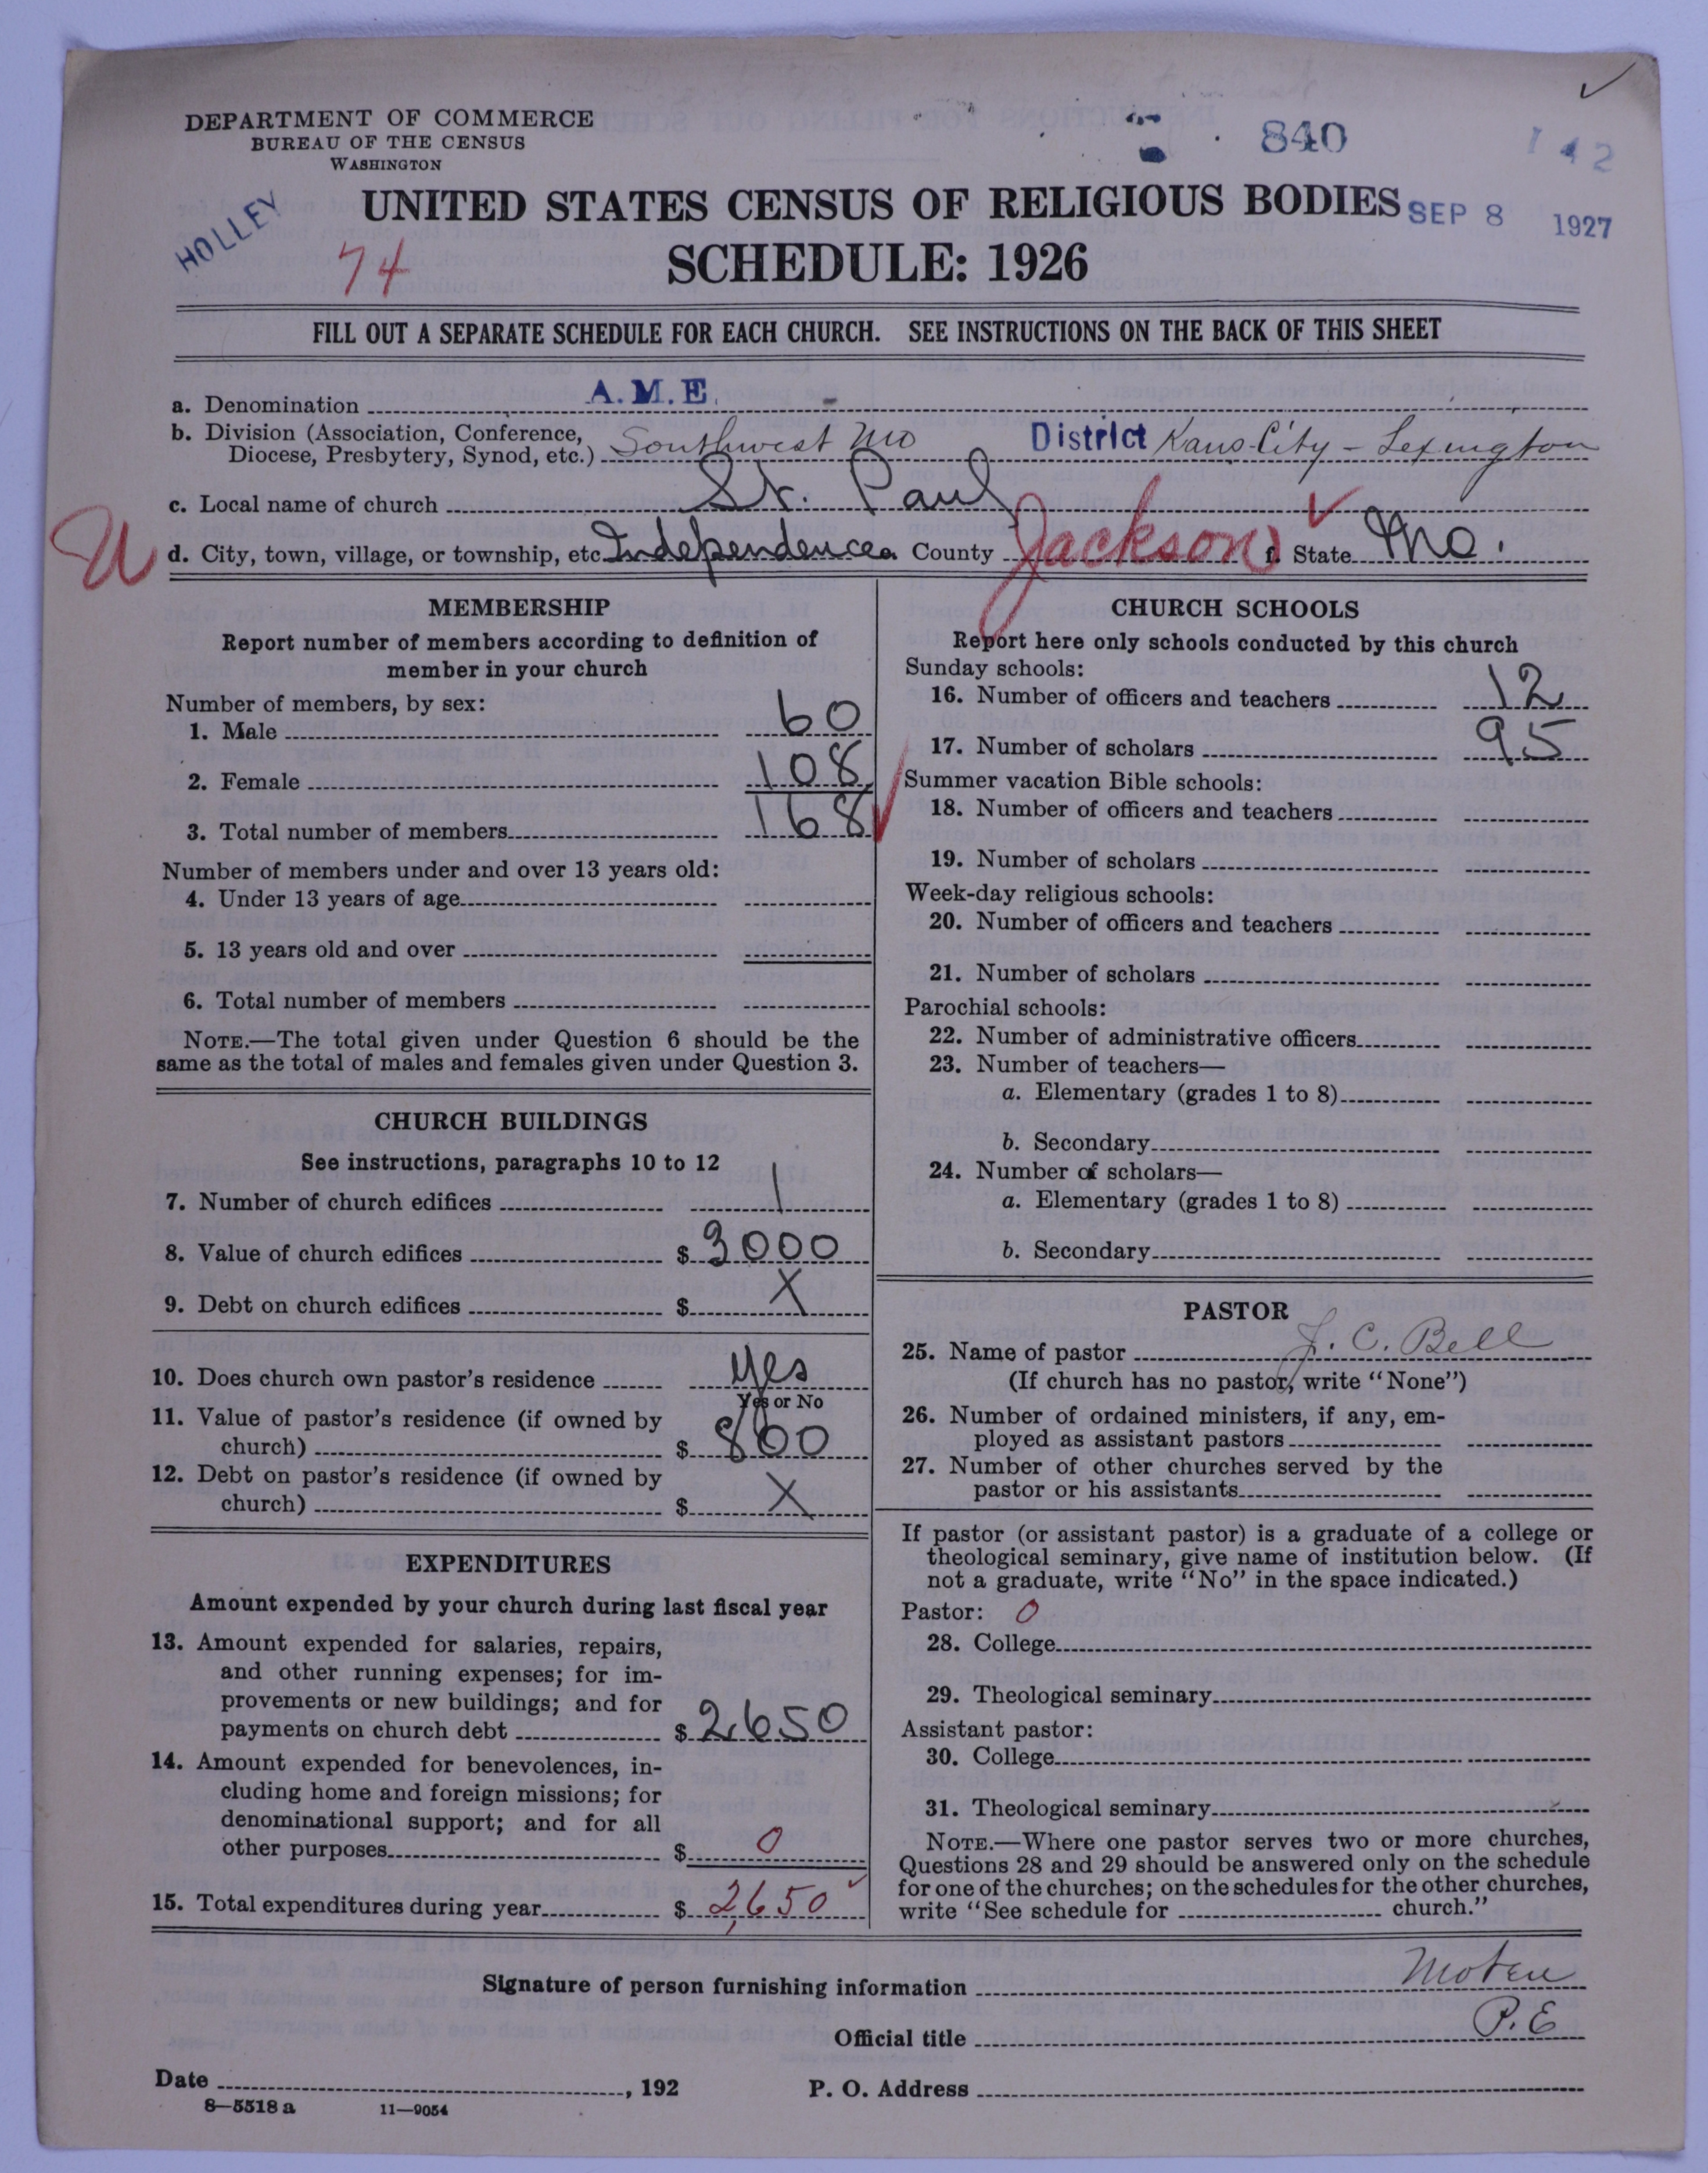 DEPARTMENT OF COMMERCE
BUREAU OF THE CENSUS
WASHINGTON
840
1 42
HOLLEY
74
UNITED STATES CENSUS OF RELIGIOUS BODIES
SEP 8 1927
SCHEDULE: 1926
FILL OUT A SEPARATE SCHEDULE FOR EACH CHURCH. SEE INSTRUCTIONS ON THE BACK OF THIS SHEET
a. Denomination A.M.E.
b. Division (Association, Conference, Diocese, Presbytery, Synod, etc.) Southwest Mo District Kans City - Lexington
c. Local name of church St. Paul
U d. City, town, village, or township, etc. Independence e. County Jackson f. State Mo.
MEMBERSHIP
Report number of members according to definition of
member in your church
Number of members, by sex:
1. Male 60
2. Female 108
3. Total number of members 168
Number of members under and over 13 years old:
4. Under 13 years of age
5. 13 years old and over
6. Total number of members
NOTE.—The total given under Question 6 should be the
same as the total of males and females given under Question 3.
CHURCH BUILDINGS
See instructions, paragraphs 10 to 12
7. Number of church edifices 1
8. Value of church edifices $ 3000
9. Debt on church edifices $ X
10. Does church own pastor's residence yes
Yes or No
11. Value of pastor's residence (if owned by
church) $ 800
12. Debt on pastor's residence (if owned by
church) $ X
EXPENDITURES
Amount expended by your church during last fiscal year
13. Amount expended for salaries, repairs,
and other running expenses; for im-
provements or new buildings; and for
payments on church debt $ 2,650
14. Amount expended for benevolences, in-
cluding home and foreign missions; for
denominational support; and for all
other purposes $ 0
15. Total expenditures during year $ 2,650
CHURCH SCHOOLS
Report here only schools conducted by this church
Sunday schools:
16. Number of officers and teachers 12
17. Number of scholars 95
Summer vacation Bible schools:
18. Number of officers and teachers
19. Number of scholars
Week-day religious schools:
20. Number of officers and teachers
21. Number of scholars
Parochial schools:
22. Number of administrative officers
23. Number of teachers—
a. Elementary (grades 1 to 8)
b. Secondary
24. Number of scholars—
a. Elementary (grades 1 to 8)
b. Secondary
PASTOR
25. Name of pastor J. C. Bell
(If church has no pastor, write "None")
26. Number of ordained ministers, if any, em-
ployed as assistant pastors
27. Number of other churches served by the
pastor or his assistants
If pastor (or assistant pastor) is a graduate of a college or
theological seminary, give name of institution below. (If
not a graduate, write "No" in the space indicated.)
Pastor: 0
28. College
29. Theological seminary
Assistant pastor:
30. College
31. Theological seminary
NOTE.—Where one pastor serves two or more churches,
Questions 28 and 29 should be answered only on the schedule
for one of the churches; on the schedules for the other churches,
write "See schedule for church."
Signature of person furnishing information Moten
Official title P.E
Date , 192 P. O. Address
8—5518 a 11—9054